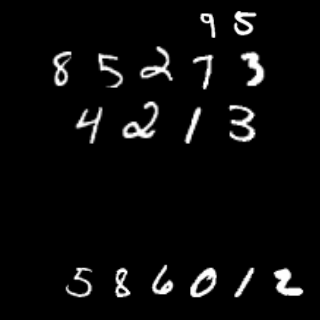 95
85273
4213
586012